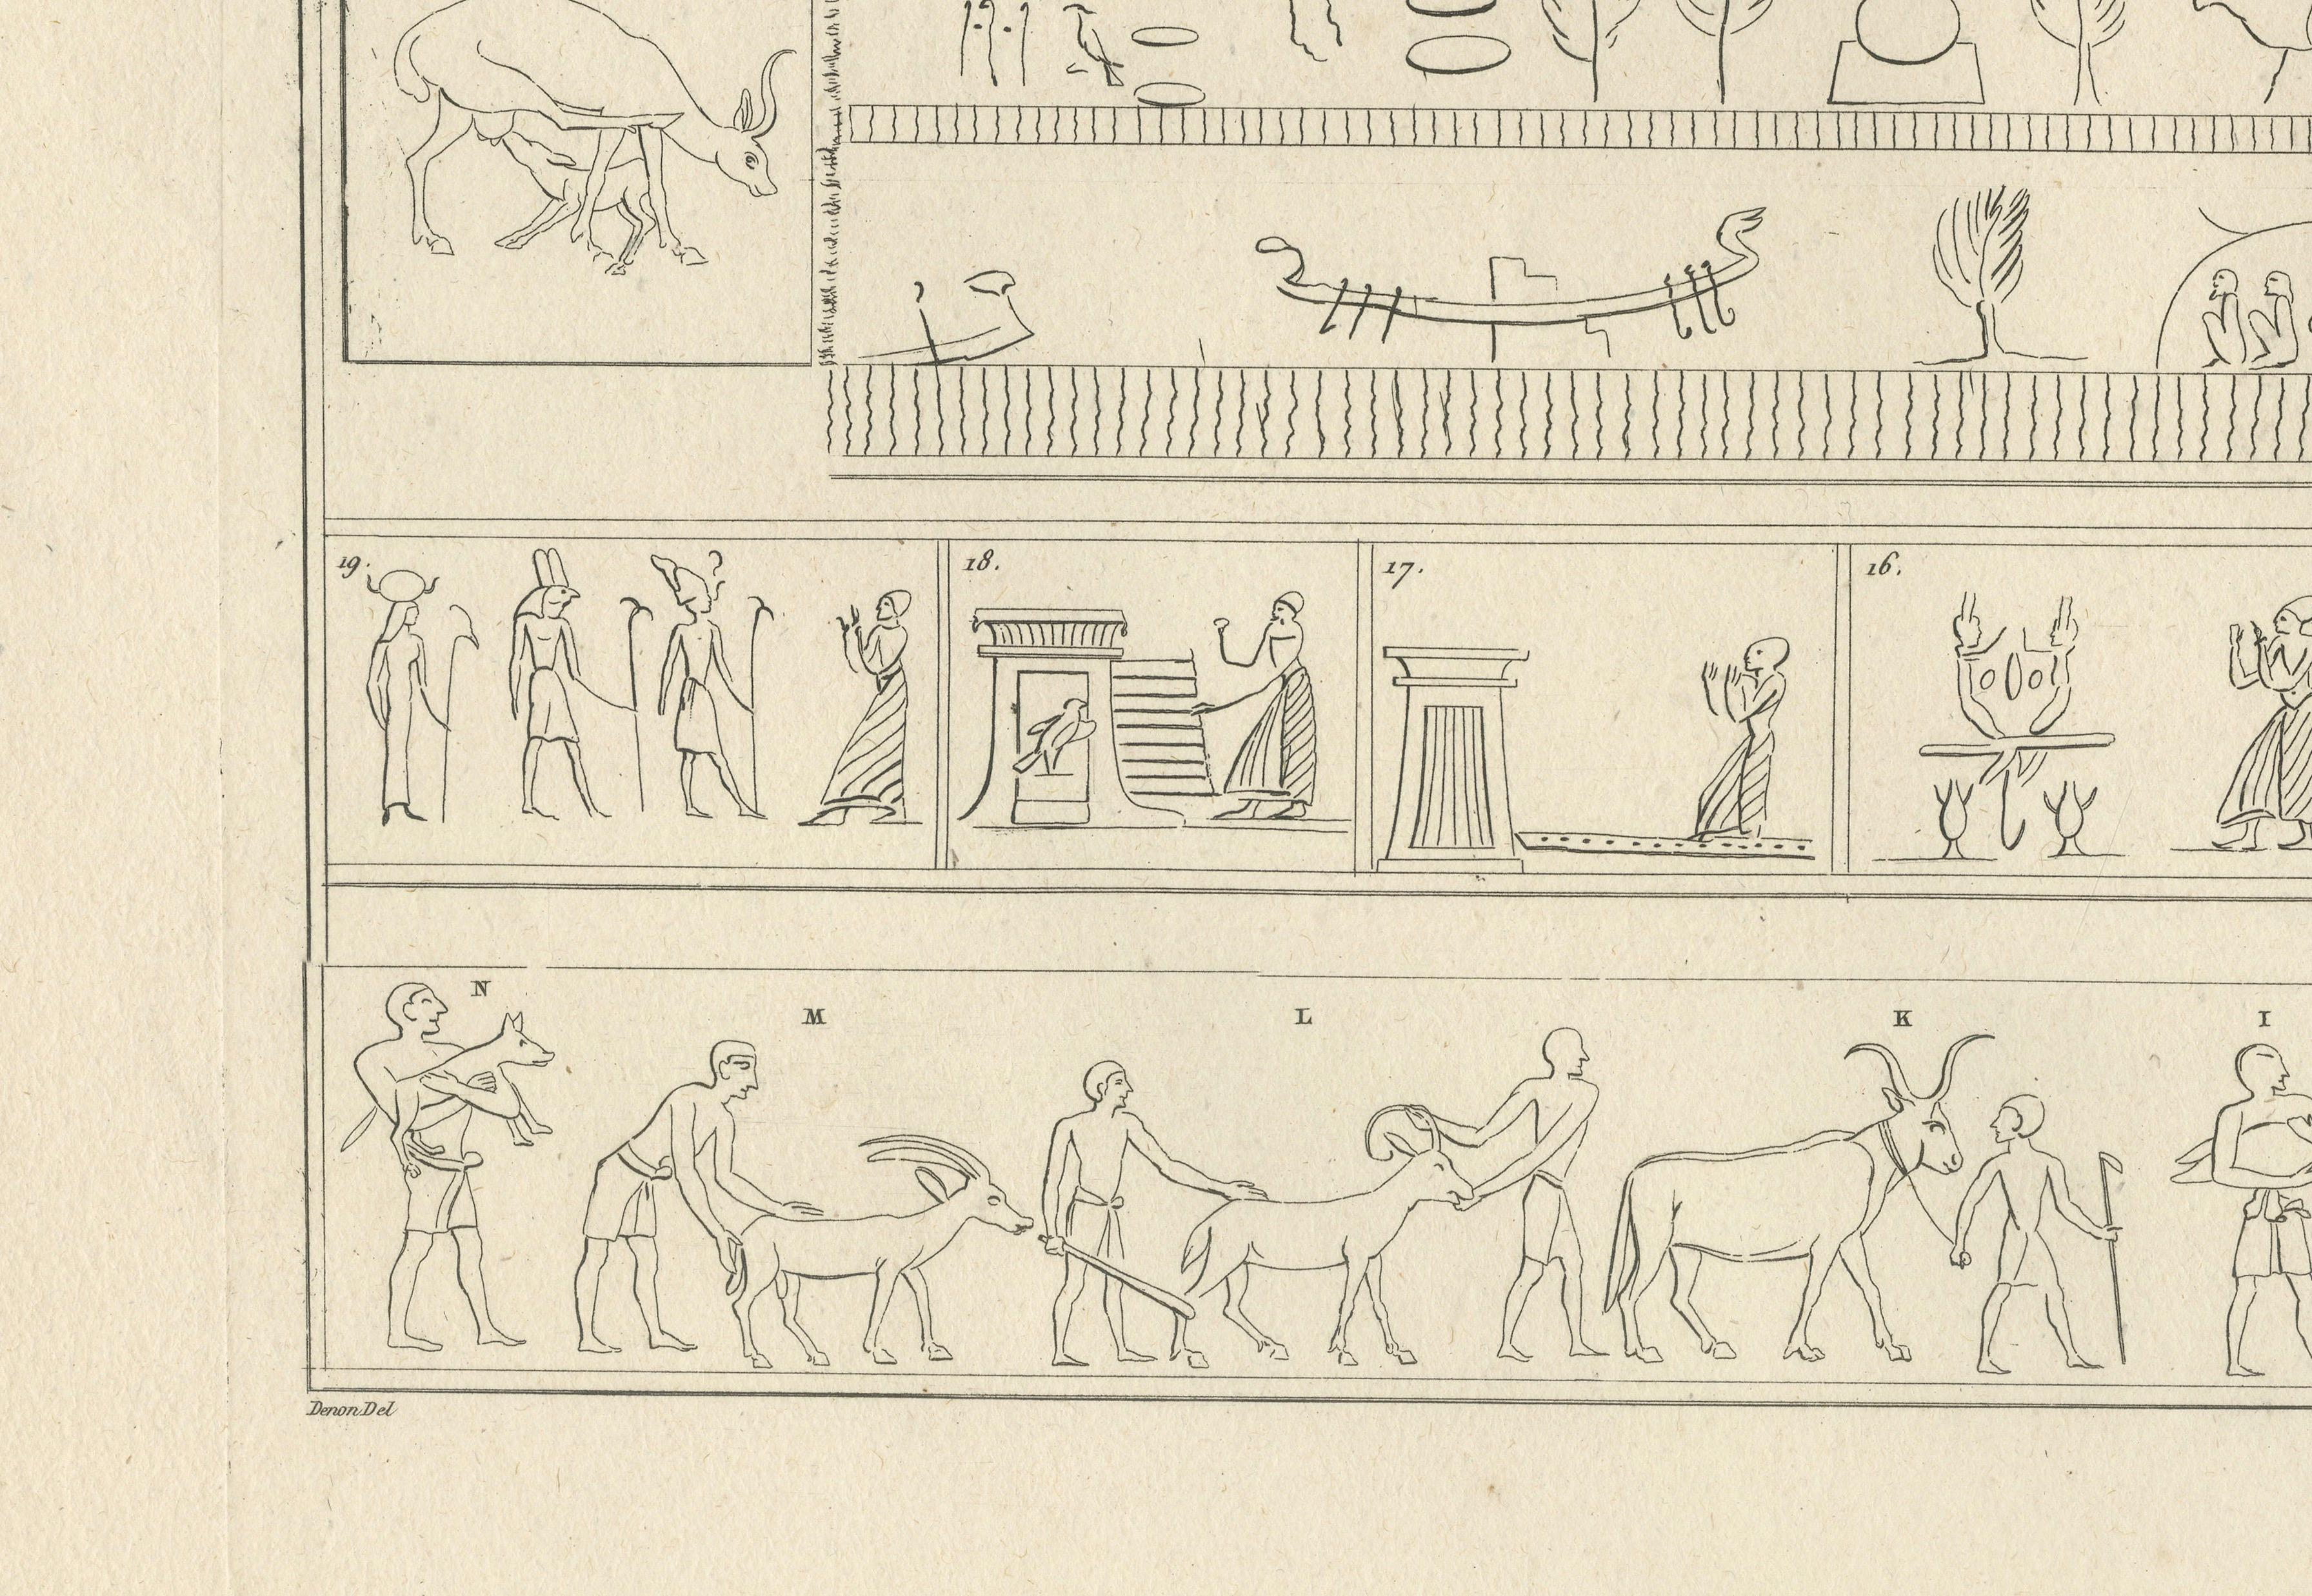 19.
18.
17.
16.
N
M
L
K
I
Denon Del